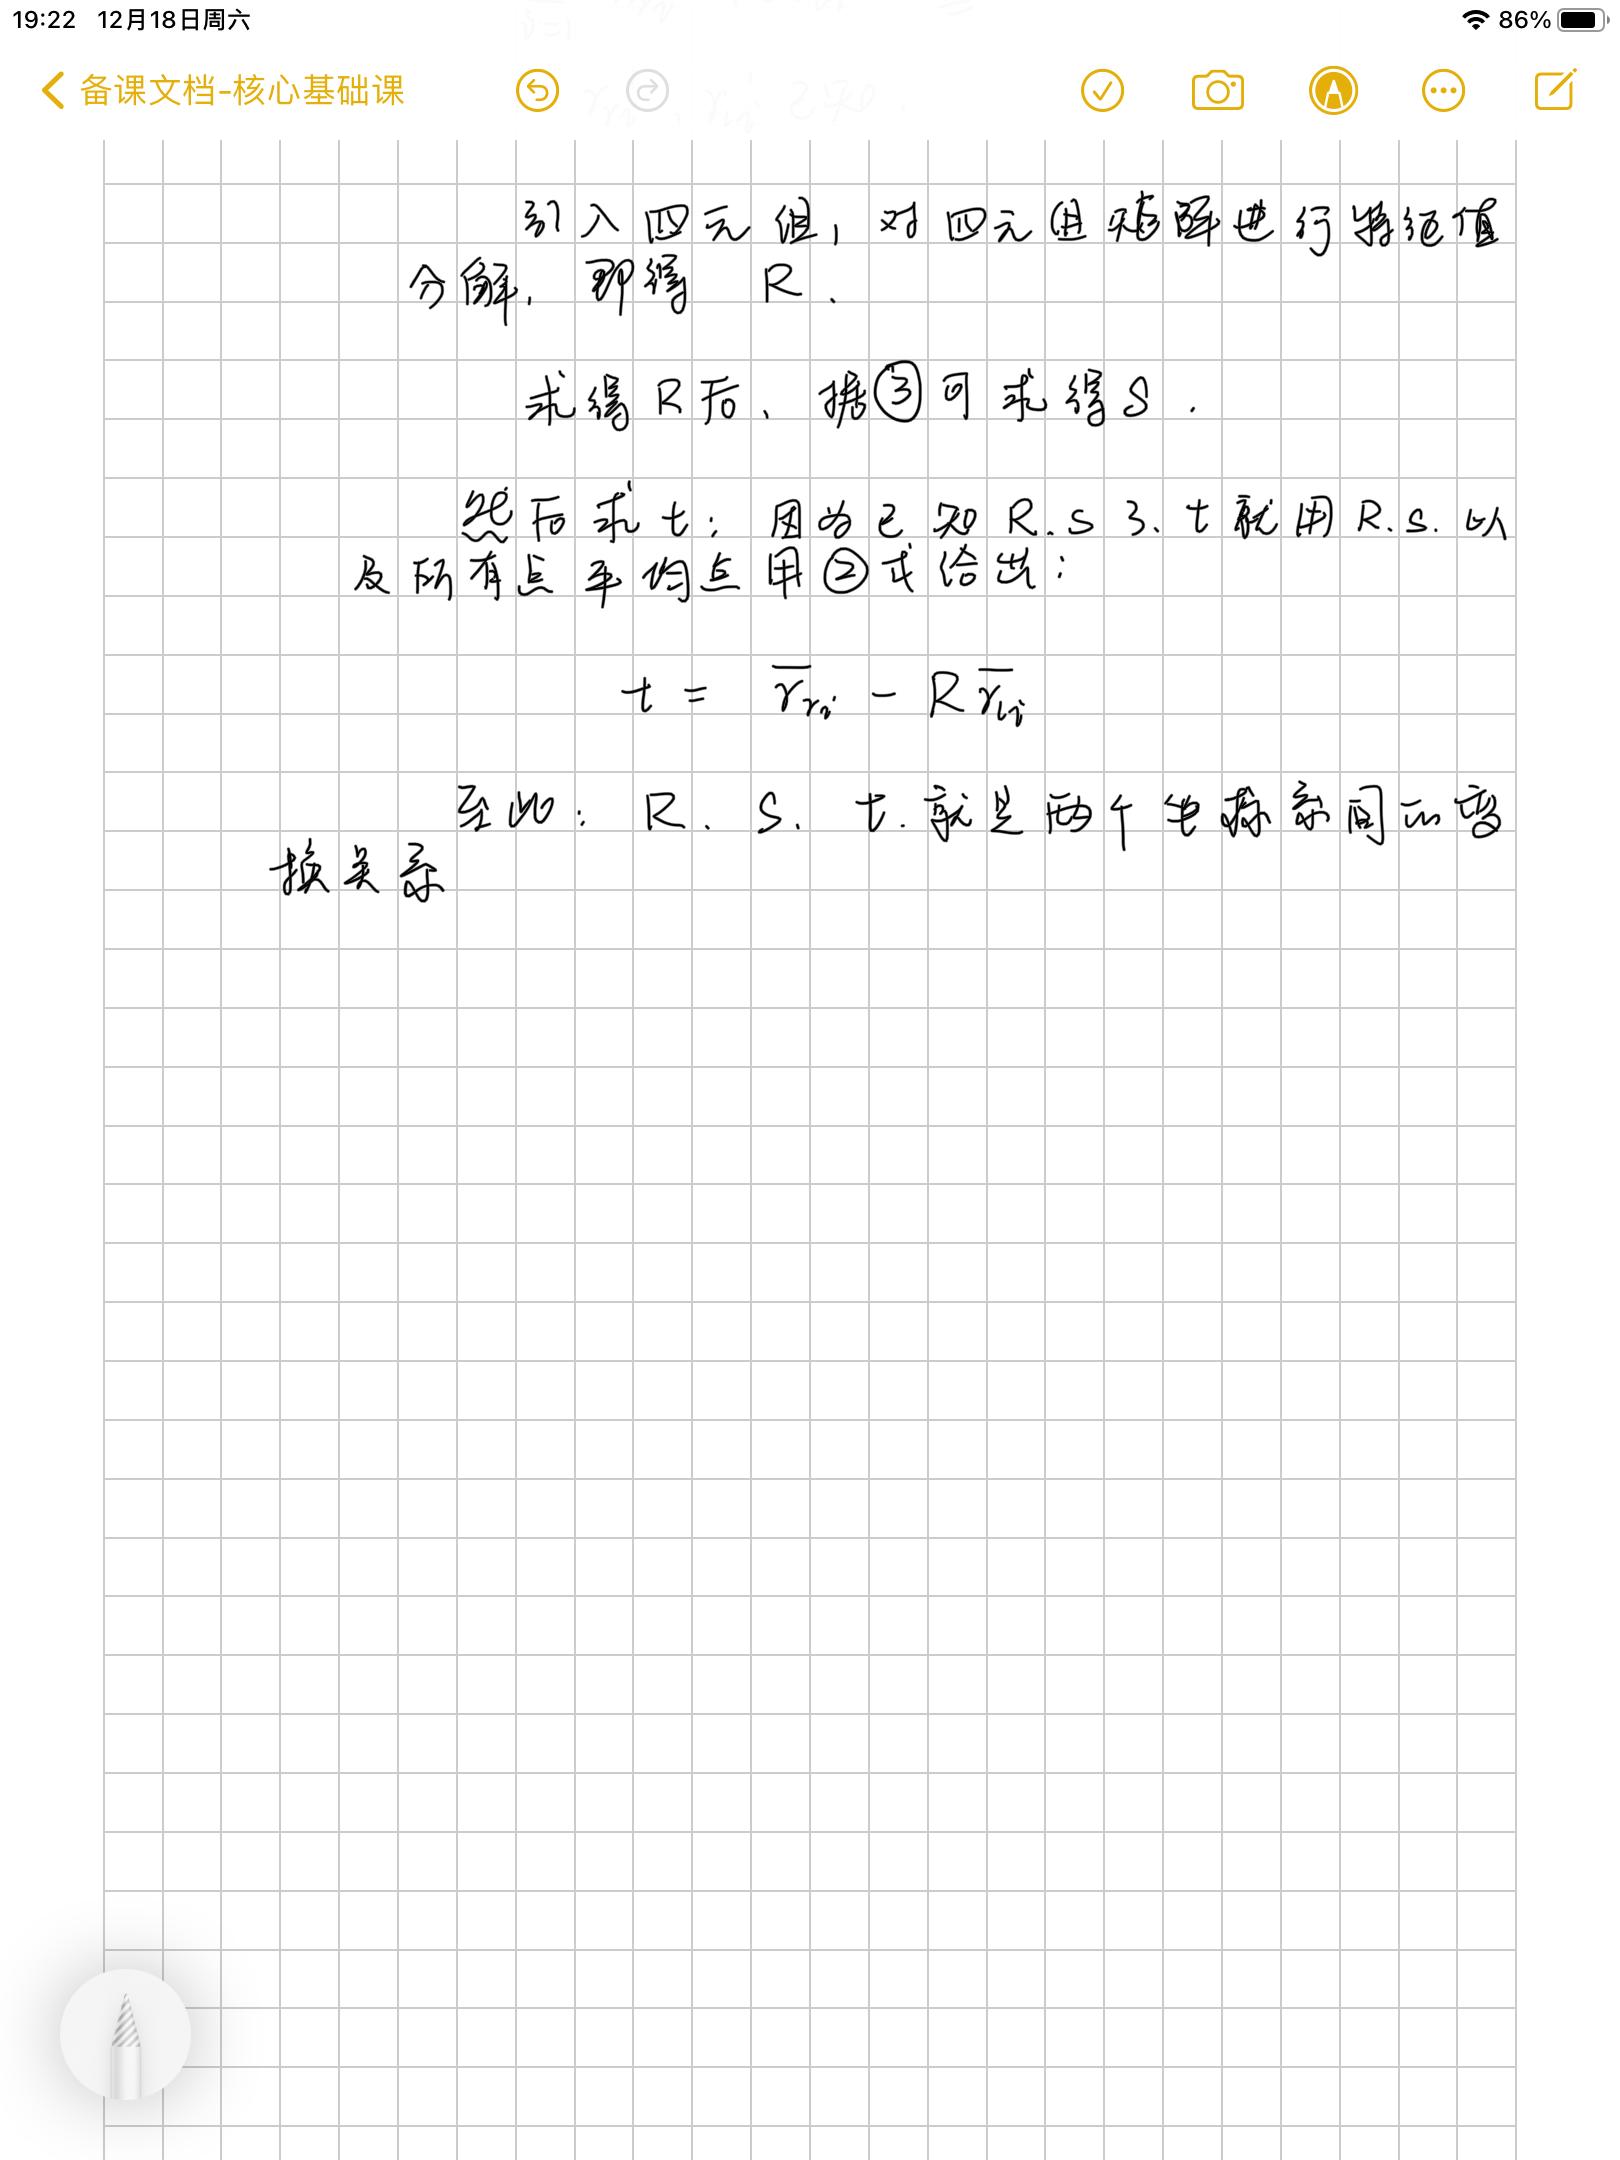 19:22 12月18日周六 86%
备课文档-核心基础课
引入四元组，对四元组矩阵进行特征值
分解，即得 R.
求得R后、据③可求得S.
然后求t：因为已知R.s了.t就用R.s.以
及所有点平均点用②式给出：
t = r̄ri - R r̄li
至此：R、S、t.就是两个坐标系间的变
换关系